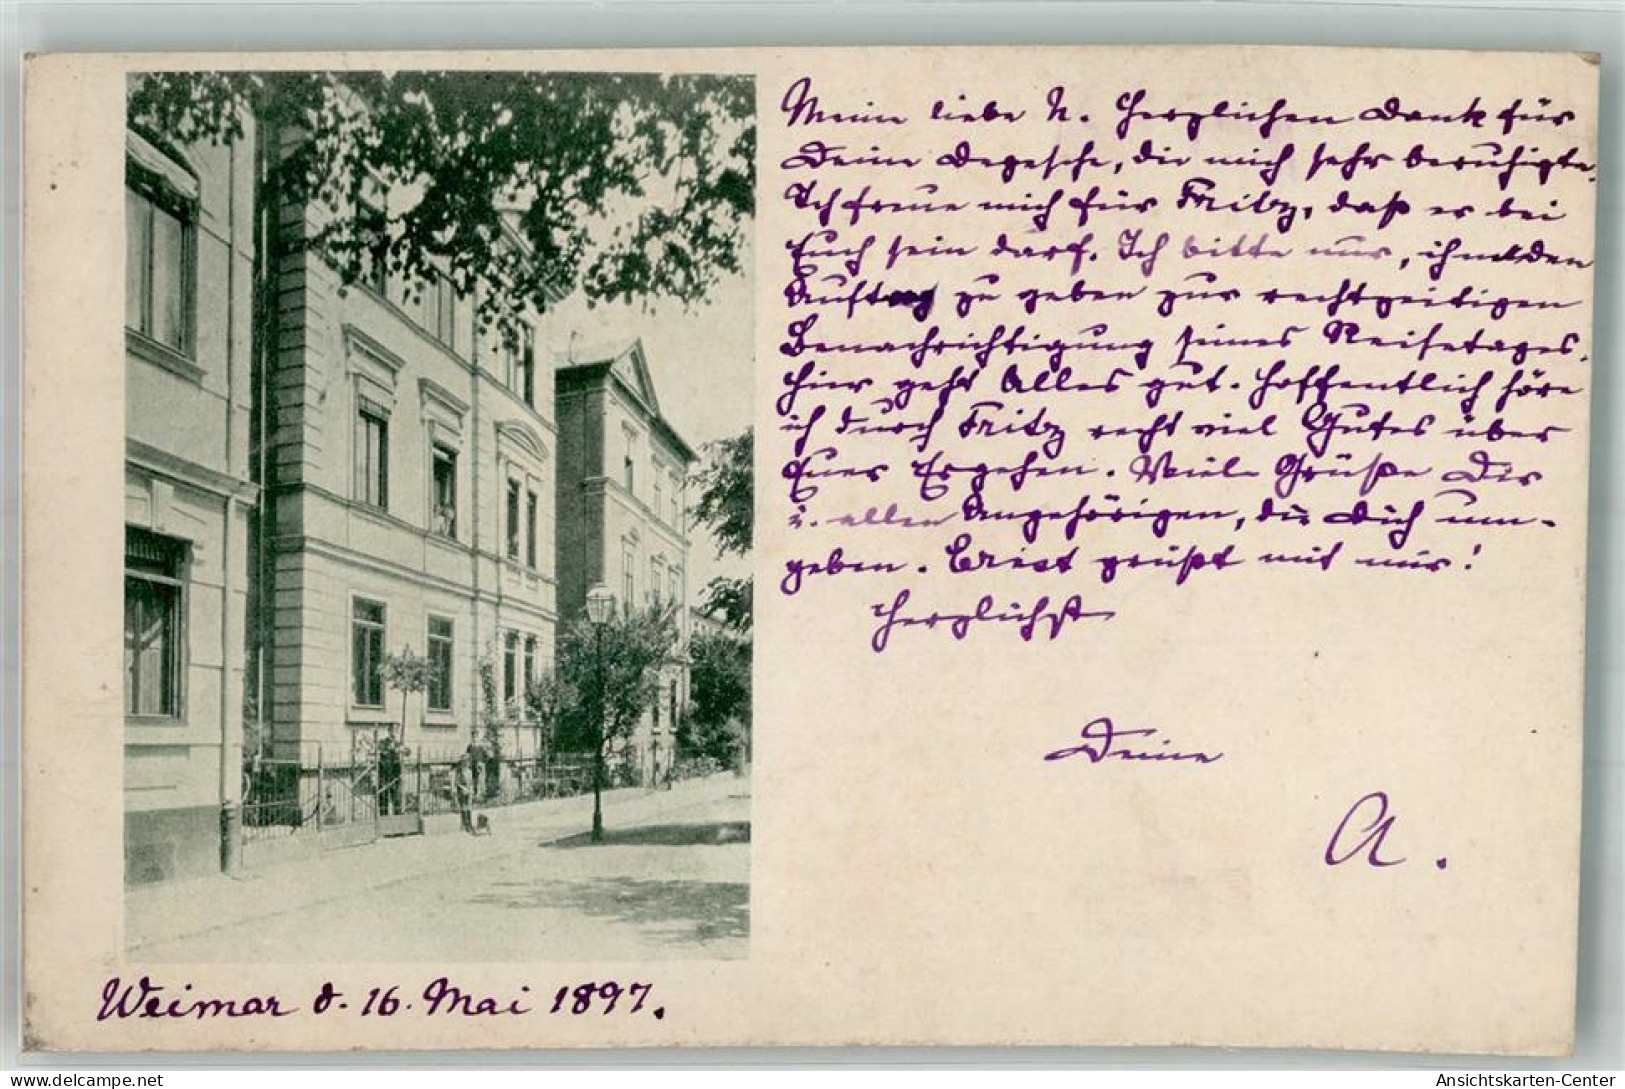 Meine liebe N. Herzlichen Dank für
Deine Depesche, die mich sehr beruhigte.
Ich freue mich für Fritz, daß er bei
Euch sein darf. Ich bitte nur, ihm den
Auftrag zu geben zur rechtzeitigen
Benachrichtigung seines Reisetages.
Hier geht Alles gut. Hoffentlich höre
ich durch Fritz recht viel Gutes über
Euer Ergehen. Viele Grüße Dir
u. allen Angehörigen, die Dich um-
geben. grüßt mit mir!
Herzlichst
Deine
A.
Weimar d. 16. Mai 1897.
Ansichtskarten-Center
delcampe.net